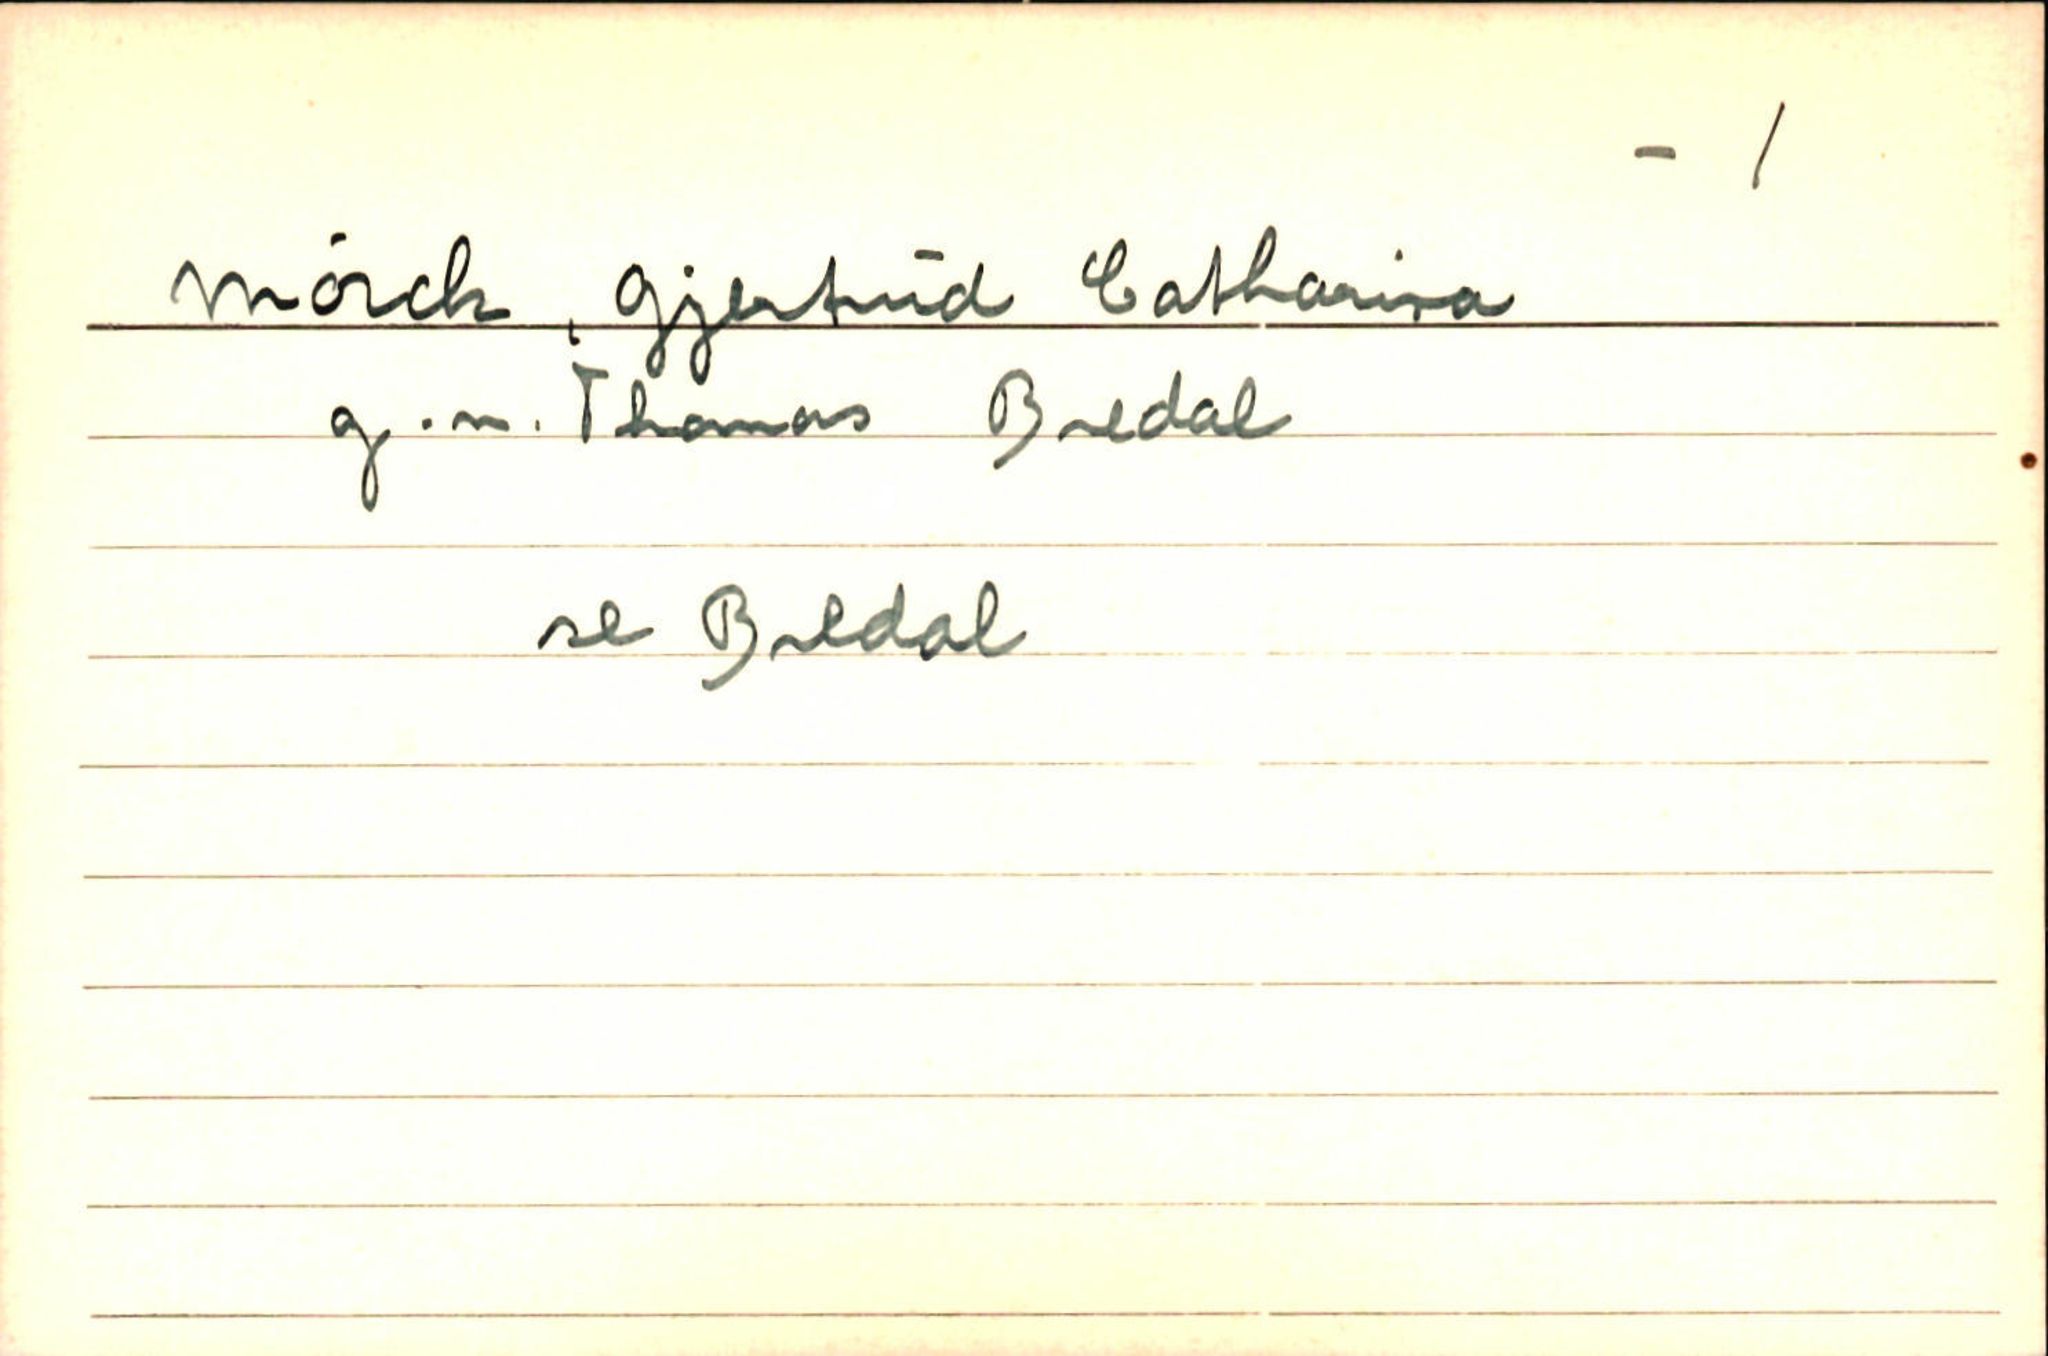 - /
Mörck, Gjertrūd Catharina
g.m. Thomas Bredal
se Bredal